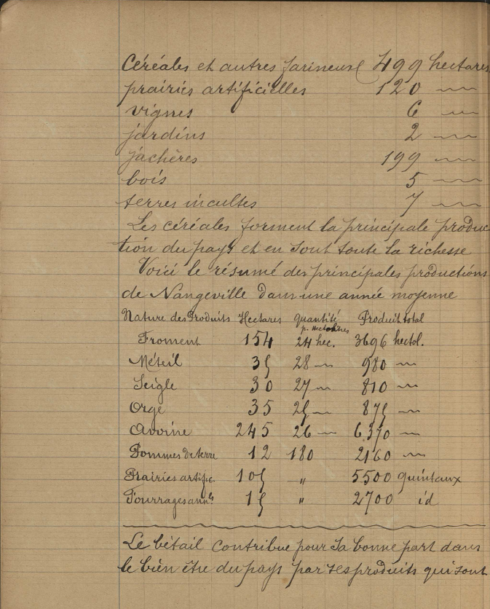 Céréales et autres farineuse( 499 hectares
prairies artificielles 120 —
vignes 6 —
jardins 2 —
jachères 199 —
bois 5 —
terres incultes 7 —
Les céréales forment la principale produc
tion du pays et en sont toute la richesse
Voici le résumé des principales productions
de Nangeville dans une année moyenne
Nature des Produits Hectares quantité p. hectares Produit total
Froment 154 24 hec. 3696 hectol.
Méteil 35 28 — 980 —
Seigle 30 27 — 810 —
Orge 35 25 — 875 —
Avoine 245 26 — 6370 —
Pommes de terre 12 180 2160 —
Prairies artific 105 " 5500 quintaux
Fourrages ann^ls 15 " 2700 id
Le bétail contribue pour sa bonne part dans
le bien être du pays par ses produits qui sont